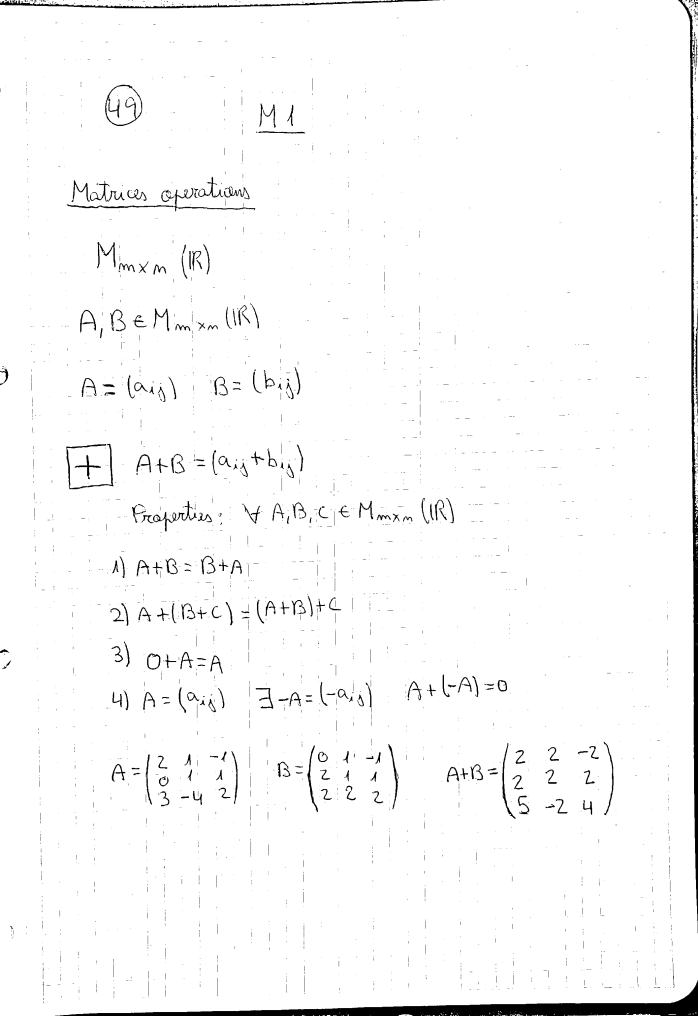 49 M1
Matrices operations
M_{m×n} (ℝ)
A, B ∈ M_{m×n} (ℝ)
A = (a_{ij}) B = (b_{ij})
+ A+B = (a_{ij} + b_{ij})
Properties: ∀ A, B, C ∈ M_{m×n} (ℝ)
1) A+B = B+A
2) A+(B+C) = (A+B)+C
3) 0+A=A
4) A = (a_{ij}) ∃ -A = (-a_{ij}) A+(-A) = 0
A = (2 1 -1; 0 1 1; 3 -4 2) B = (0 1 -1; 2 1 1; 2 2 2) A+B = (2 2 -2; 2 2 2; 5 -2 4)